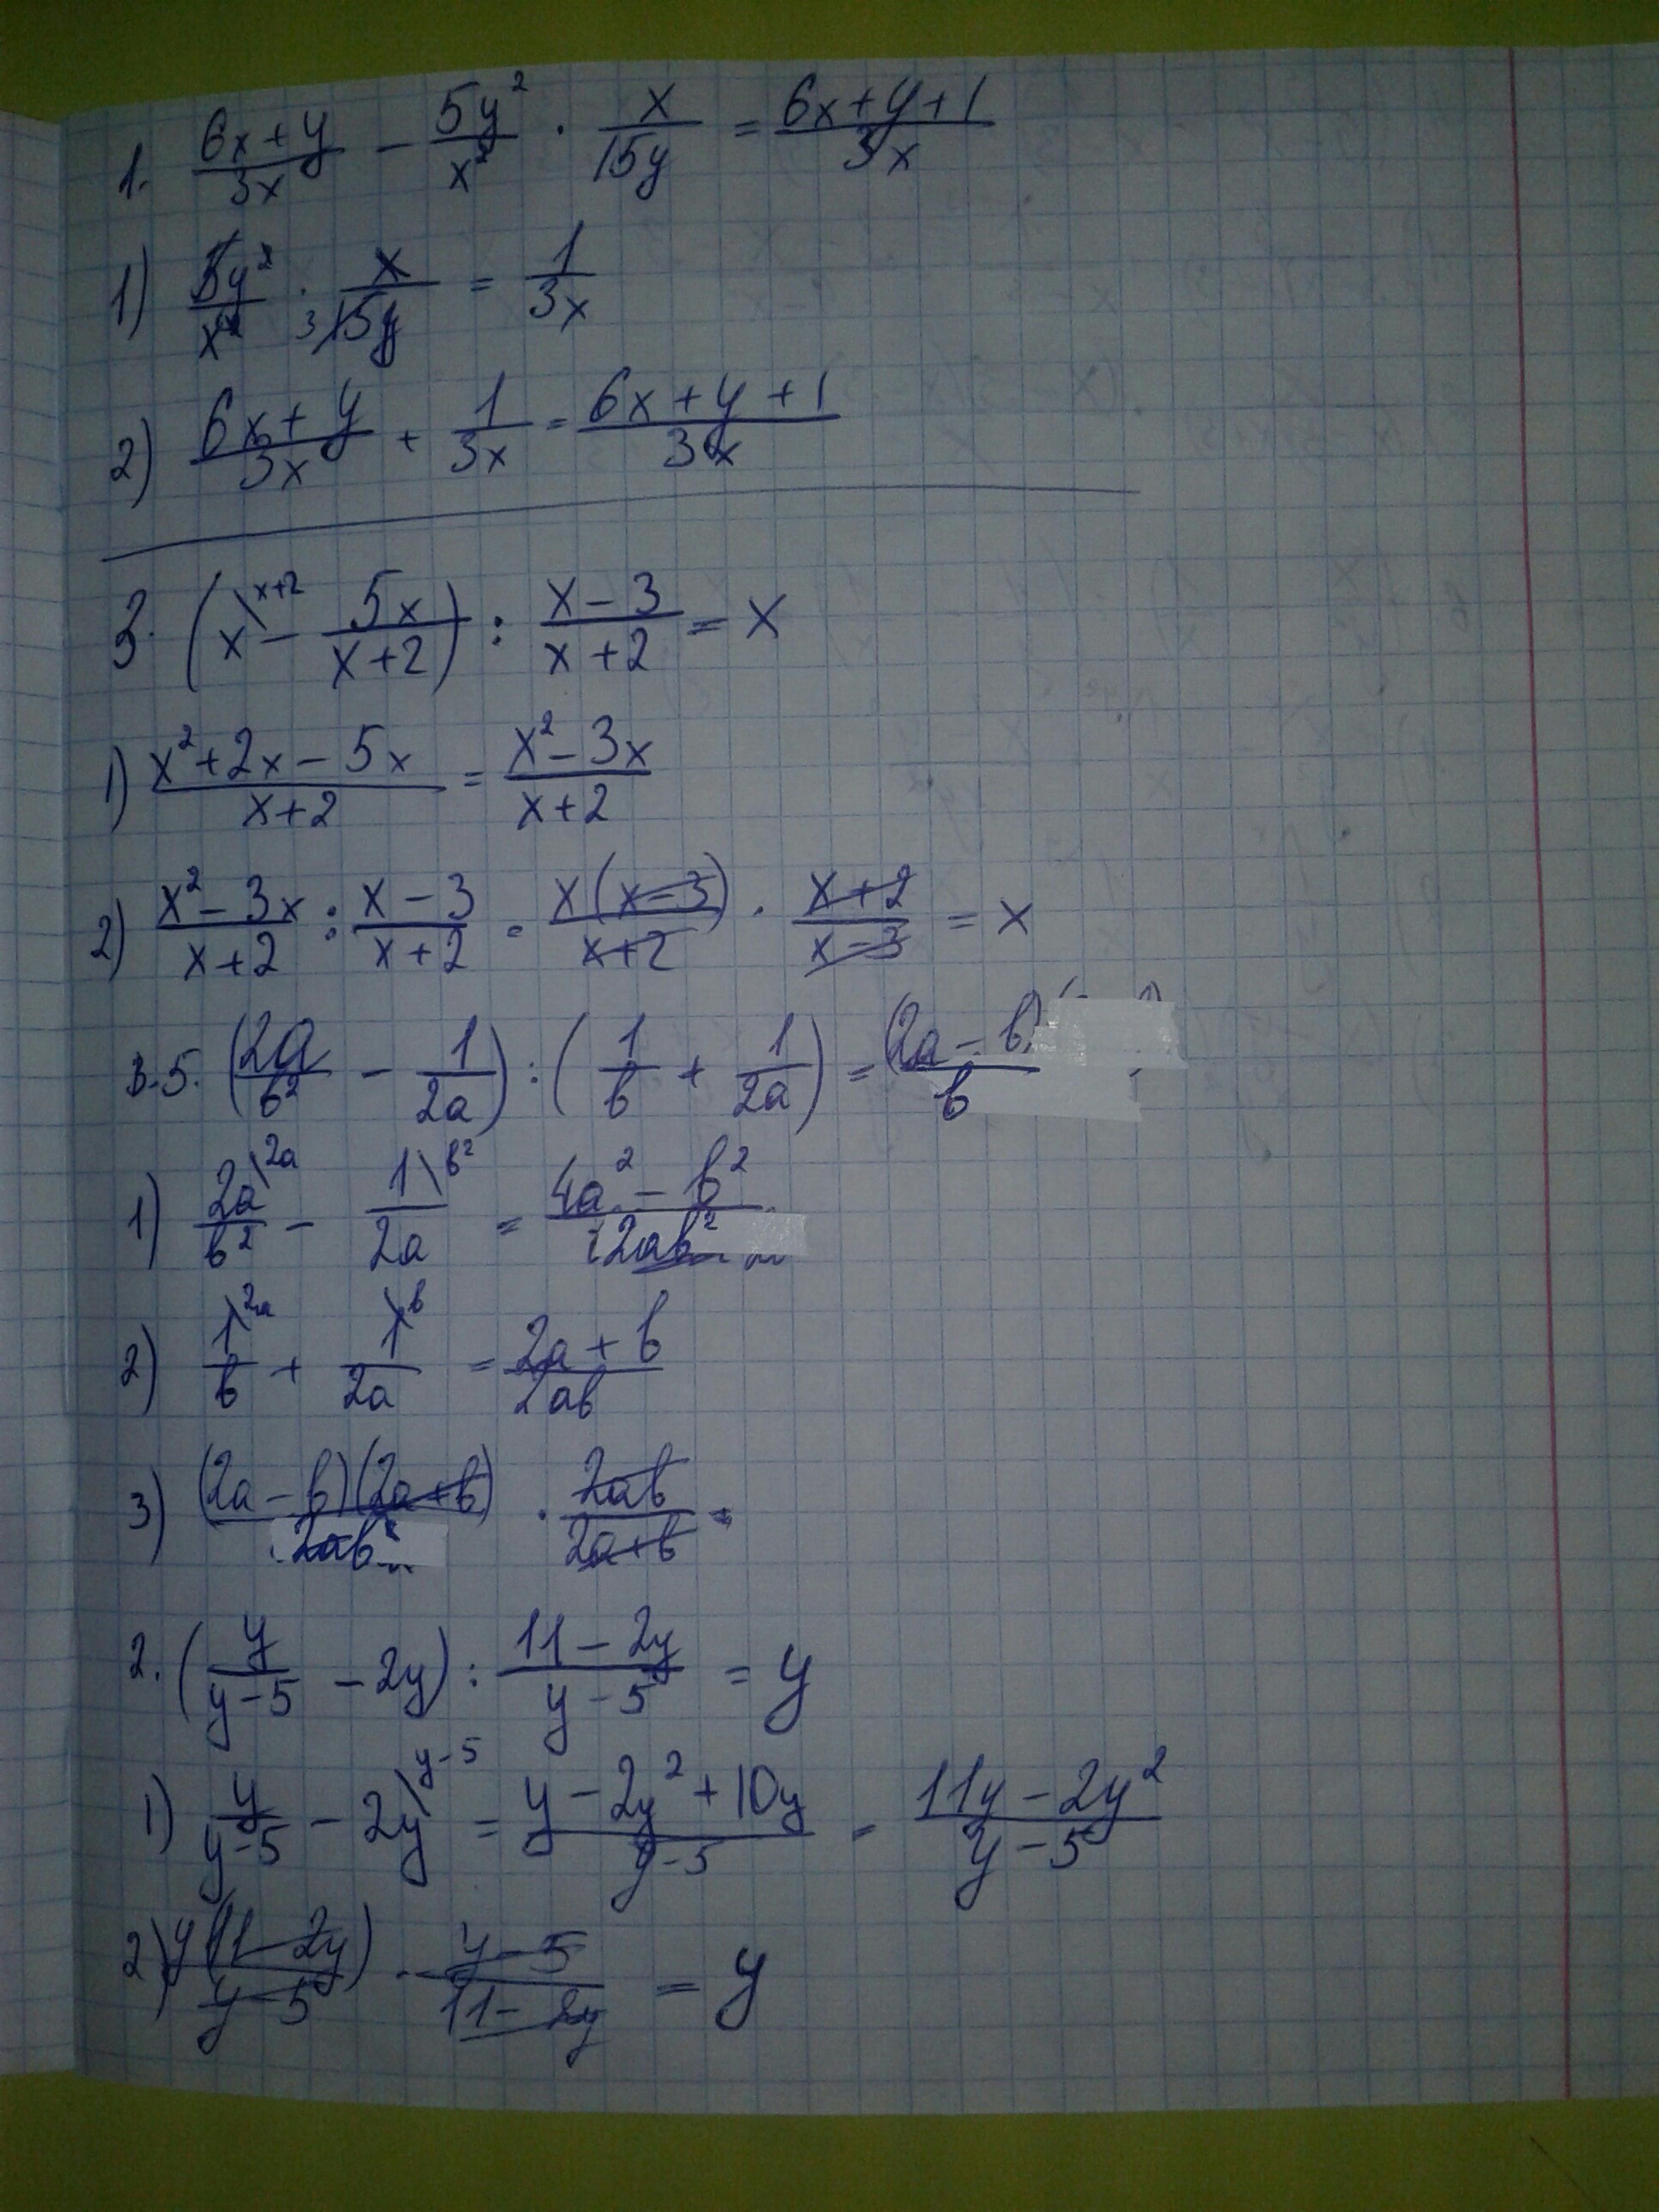 1. (6x+y)/(3x) − (5y²)/(x²) · x/(15y) = (6x+y+1)/(3x)
1) (5y²)/(x²) · x/(3 15y) = 1/(3x)
2) (6x+y)/(3x) + 1/(3x) = (6x+y+1)/(3x)
3. (x\ˣ⁺² − (5x)/(x+2)) : (x−3)/(x+2) = x
1) (x²+2x−5x)/(x+2) = (x²−3x)/(x+2)
2) (x²−3x)/(x+2) : (x−3)/(x+2) = (x(x−3))/(x+2) · (x+2)/(x−3) = x
В-5. ((2a)/(в²) − 1/(2a)) : (1/в + 1/(2a)) = (2a−в)/в
1) (2a\²ᵃ)/(в²) − (1\в²)/(2a) = (4a²−в²)/(2aв²)
2) (1\²ᵃ)/в + (1\в)/(2a) = (2a+в)/(2aв)
3) ((2a−в)(2a+в))/(2aв²) · (2aв)/(2a+в) =
2. (y/(y−5) − 2y) : (11−2y)/(y−5) = y
1) y/(y−5) − 2y\ʸ⁻⁵ = (y−2y²+10y)/(y−5) = (11y−2y²)/(y−5)
2) (y(11−2y))/(y−5) · (y−5)/(11−2y) = y